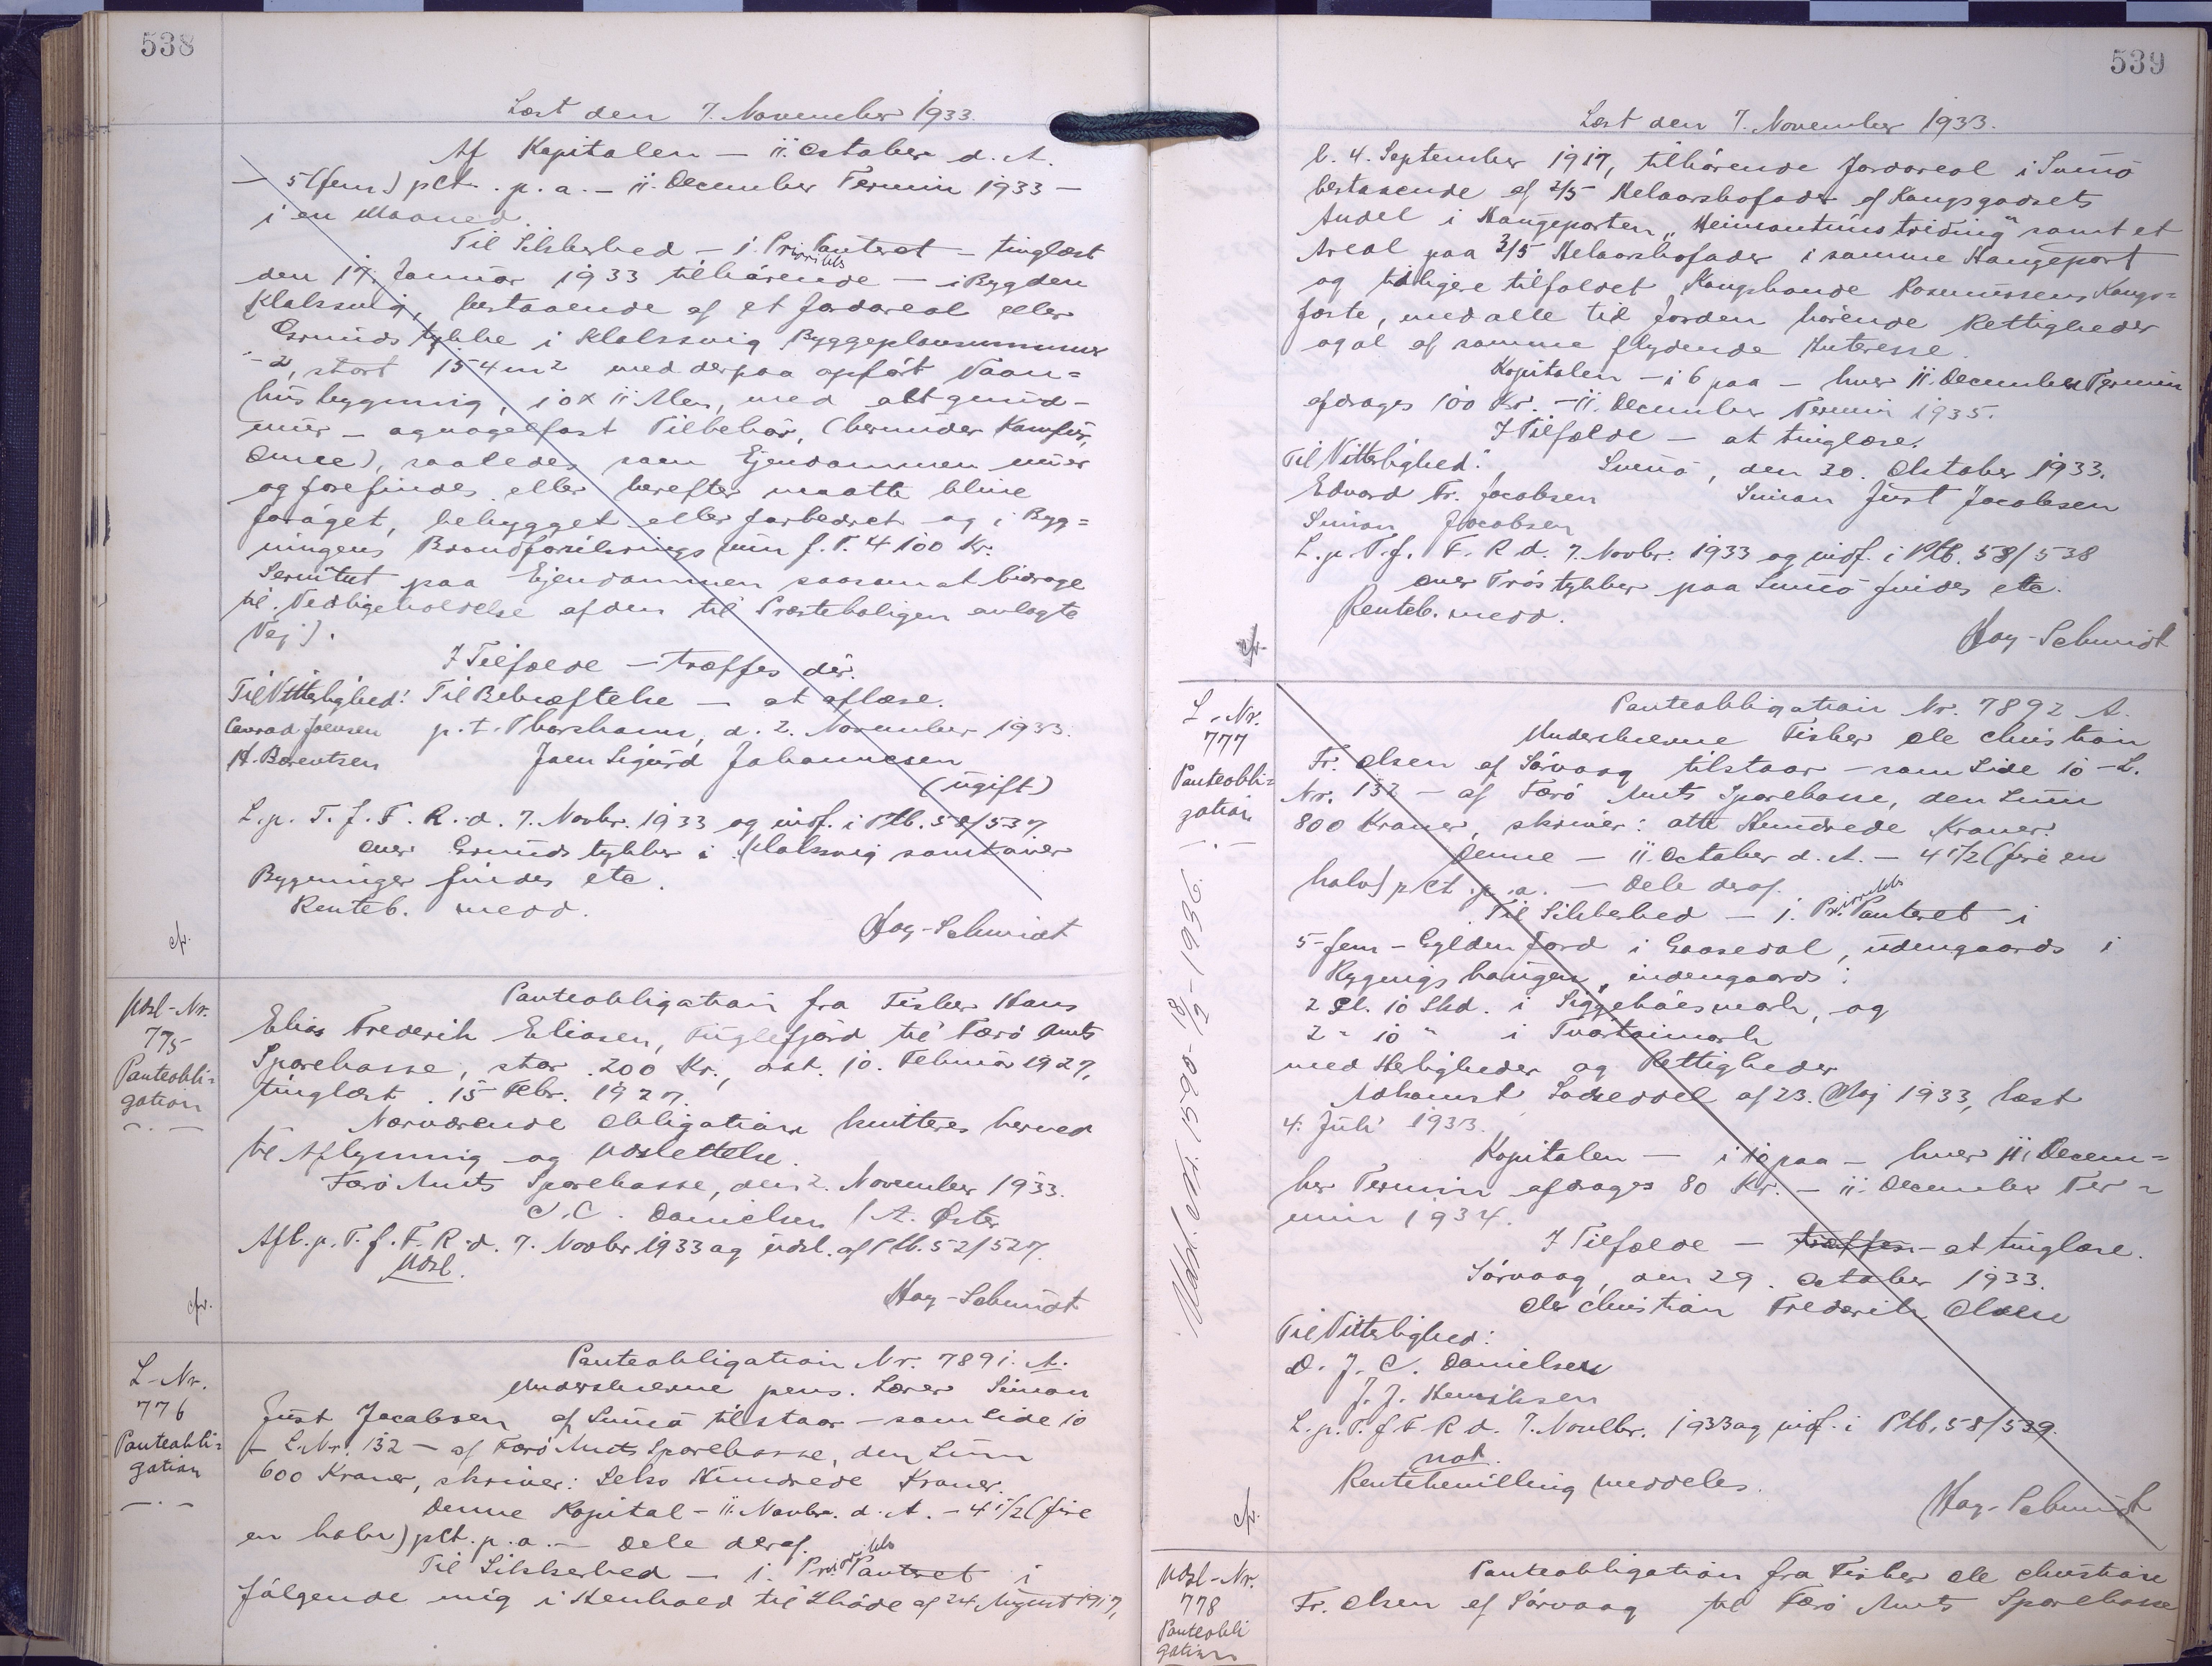 538
Læst den 7. November 1933.
Af Kapitalen — 11. October d. A.
— 5 (fem) pCt. p. a. — 11. December Termin 1933 —
i en Maaned.
Til Sikkerhed — 1. Prioritets Panteret — tinglæst
den 17. Januar 1933 tilhørende — i Bygden
Klaksvig, bestaaende af et Jordareal eller
Grundstykke i Klaksvig Byggeplansnummer
2, stort 154 m² med derpaa opført Vaan=
husbygning, 10 x 11 Alen, med alt grund-
mur- og nagelfast Tilbehør, (herunder Komfur,
Ovne), saaledes som Ejendommen nu er
og forefindes eller herefter maatte blive
forøget, bebygget eller forbedret og i Byg=
ningens Brandforsikringssum f. T. 4100 Kr.
Servitut paa Ejendommen saasom at bidrage
til Vedligeholdelse af den til Præsteboligen anlagte
Vej).
I Tilfælde — træffes dér.
Til Vitterlighed: Til Bekræftelse — at aflæse.
Conrad Joensen p. t. Thorshavn, d. 2. November 1933.
A. Berentsen Joen Sigurd Johannesen
(ugift)
L. p. T. f. F. R. d. 7. Novbr. 1933 og indf. i Ptb. 58/537.
Over Grundstykker i Klaksvig samt over
Bygninger findes etc.
Renteb. medd.
Hay-Schmidt
cfr.
Udsl-Nr.
775
Panteobli=
gation
Panteobligation fra Fisker Hans
Elias Frederik Eliasen, Fuglefjord til Færø Amts
Sparekasse, stor 200 Kr., dat. 10. Februar 1927,
tinglæst 15 Febr. 1927.
Nærværende Obligation kvitteres herved
til Aflysning og Udslettelse.
Færø Amts Sparekasse, den 2. November 1933.
J. C. Danielsen / A. Øster
Afl. p. T. f. F. R. d. 7. Novbr 1933 og udsl. af Ptb. 52/527.
Udsl.
Hay-Schmidt
cfr.
L-Nr.
776
Panteobli=
gation
Panteobligation Nr. 7891. A.
Underskrevne pens. Lærer Simon
Just Jacobsen af Sumø tilstaar — som Side 10
— L.Nr. 132 — af Færø Amts Sparekasse, den Sum
600 Kroner, skriver: Seks Hundrede Kroner.
Denne Kapital — 11. Novbr. d. A. — 4 1/2 (fire
en halv) pCt. p. a. — Dele deraf.
Til Sikkerhed — 1. Prioritets Panteret i
følgende mig i Henhold til Skøde af 24 August 1917,
539
Læst den 7. November 1933.
l. 4. September 1917, tilhørende Jordareal i Sumø
bestaaende af 2/5 Helaarshofoder af Kongsgodsets
Andel i Haugeparten „Heimantúnstriðing" samt et
Areal paa 3/5 Helaarshofoder i samme Haugepart
og tidligere tilfaldet Kongsbonde Rasmussens Kongs=
fæste, med alle til Jorden hørende Rettigheder
og al af samme flydende Interesse.
Kapitalen — i 6 paa — hver 11. December Termin
afdrages 100 Kr. — 11. December Termin 1935.
I Tilfælde — at tinglæse.
Til Vitterlighed: Sumø, den 30. Oktober 1933.
Edvard Fr. Jacobsen Simon Just Jacobsen
Simon Jacobsen
L. p. T. f. F. R. d. 7. Novbr. 1933 og indf. i Ptb. 58/538
Over Tróstykker paa Sumø findes etc.
Renteb. medd.
Hay-Schmidt
cfr.
L-Nr.
777
Panteobli=
gation
Udsl. Nr. 1590-18/2-1936.
Panteobligation Nr. 7892 A.
Underskrevne Fisker Ole Christian
Fr. Olsen af Sørvaag tilstaar — som Side 10 — L.
Nr. 132 — af Færø Amts Sparekasse, den Sum
800 Kroner, skriver: otte Hundrede Kroner.
Denne — 11. October d. A. — 4 1/2 (fire en
halv) pCt. p. a. — Dele deraf.
Til Sikkerhed — 1. Prioritets Panteret i
5-fem-Gylden Jord i Gaasedal, udengaards i
Rygningshaugen, indengaards:
2 Gl. 10 Skd. i Siggehúsmark, og
2 " 10 " i Tvørtaimark
med Herligheder og Rettigheder
Adkomst Lodseddel af 23. Maj 1933, læst
4. Juli 1933.
Kapitalen — i 10 paa — hver 11. Decem=
ber Termin afdrages 80 Kr. — 11. December Ter=
min 1934.
I Tilfælde — træffes — at tinglæse.
Sørvaag, den 29. October 1933.
Ole Christian Frederik Olsen
Til Vitterlighed:
D. J. C. Danielsen
J. J. Henriksen
L. p. T. f. F. R d. 7. Novbr. 1933 og indf. i Ptb. 58/539.
not.
Rentebevilling meddeles.
Hay-Schmidt
cfr.
Udsl-Nr.
778
Panteobli
gation
Panteobligation fra Fisker Ole Christian
Fr. Olsen af Sørvaag til Færø Amts Sparekasse